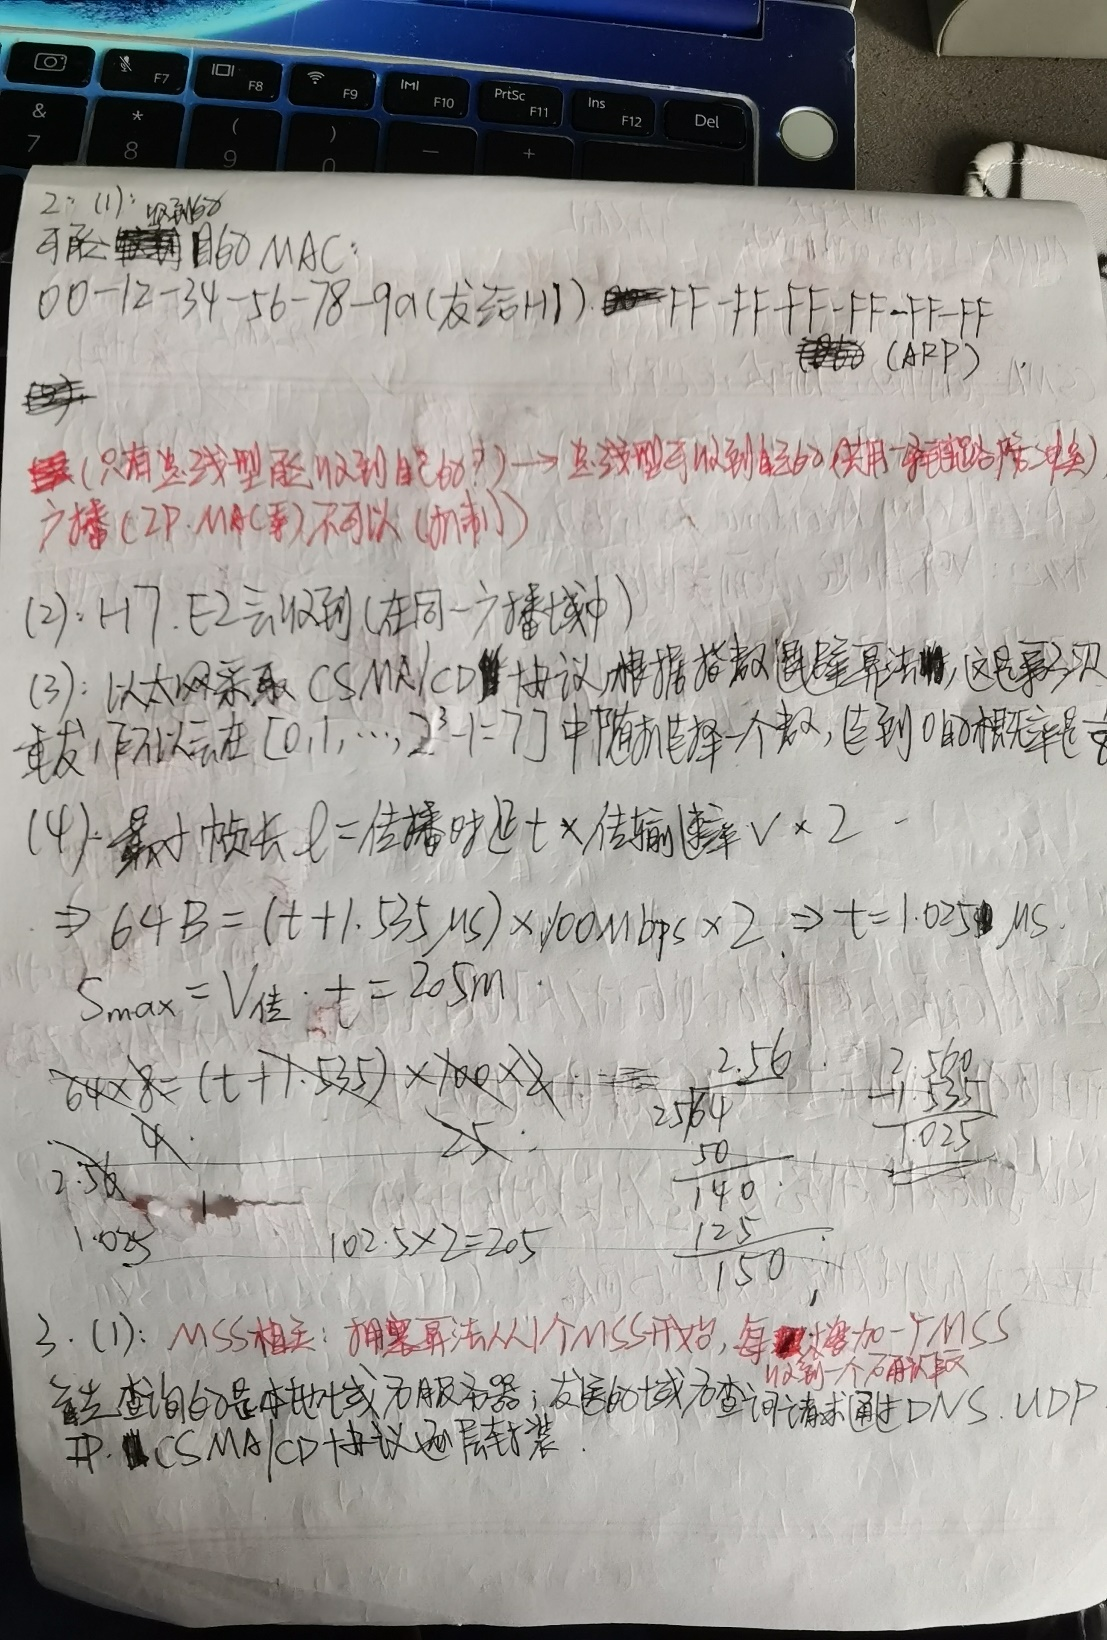 F7
F8
F9
F10
PrtSc
F11
Ins
F12
Del
&
7
*
8
(
9
)
0
—
+
2: (1): 收到的
可能 目的MAC:
00-12-34-56-78-9a(发给H1). FF-FF-FF-FF-FF-FF
(ARP)
(只有总线型能收到自己的?)→总线型可收到自己的
广播(IP.MAC等)不可以(机制)
(2): H7.E2会收到(在同一广播域中)
(3): 以太网采取CSMA/CD协议,根据指数退避算法,这是第3次
重发,所以会在[0,1,…,2³-1=7]中随机选择一个数,选到0的概率是
(4): 最小帧长l=传播时延t×传输速率V×2
⇒ 64B=(t+1.535μs)×100Mbps×2 ⇒ t=1.025μs.
Smax=V传·t=205m.
64×8=(t+1.535)×100×2
4
25
2.56
1.025
102.5×2=205
2.56
25 64
50
140
125
150
2.560
-1.535
1.025
3.(1): MSS相关: 拥塞算法从1个MSS开始,每 增加一个MSS
收到一个确认
首先查询的是本地域名服务器;发送的域名查询请求通过DNS.UDP
IP.CSMA/CD协议逐层封装.